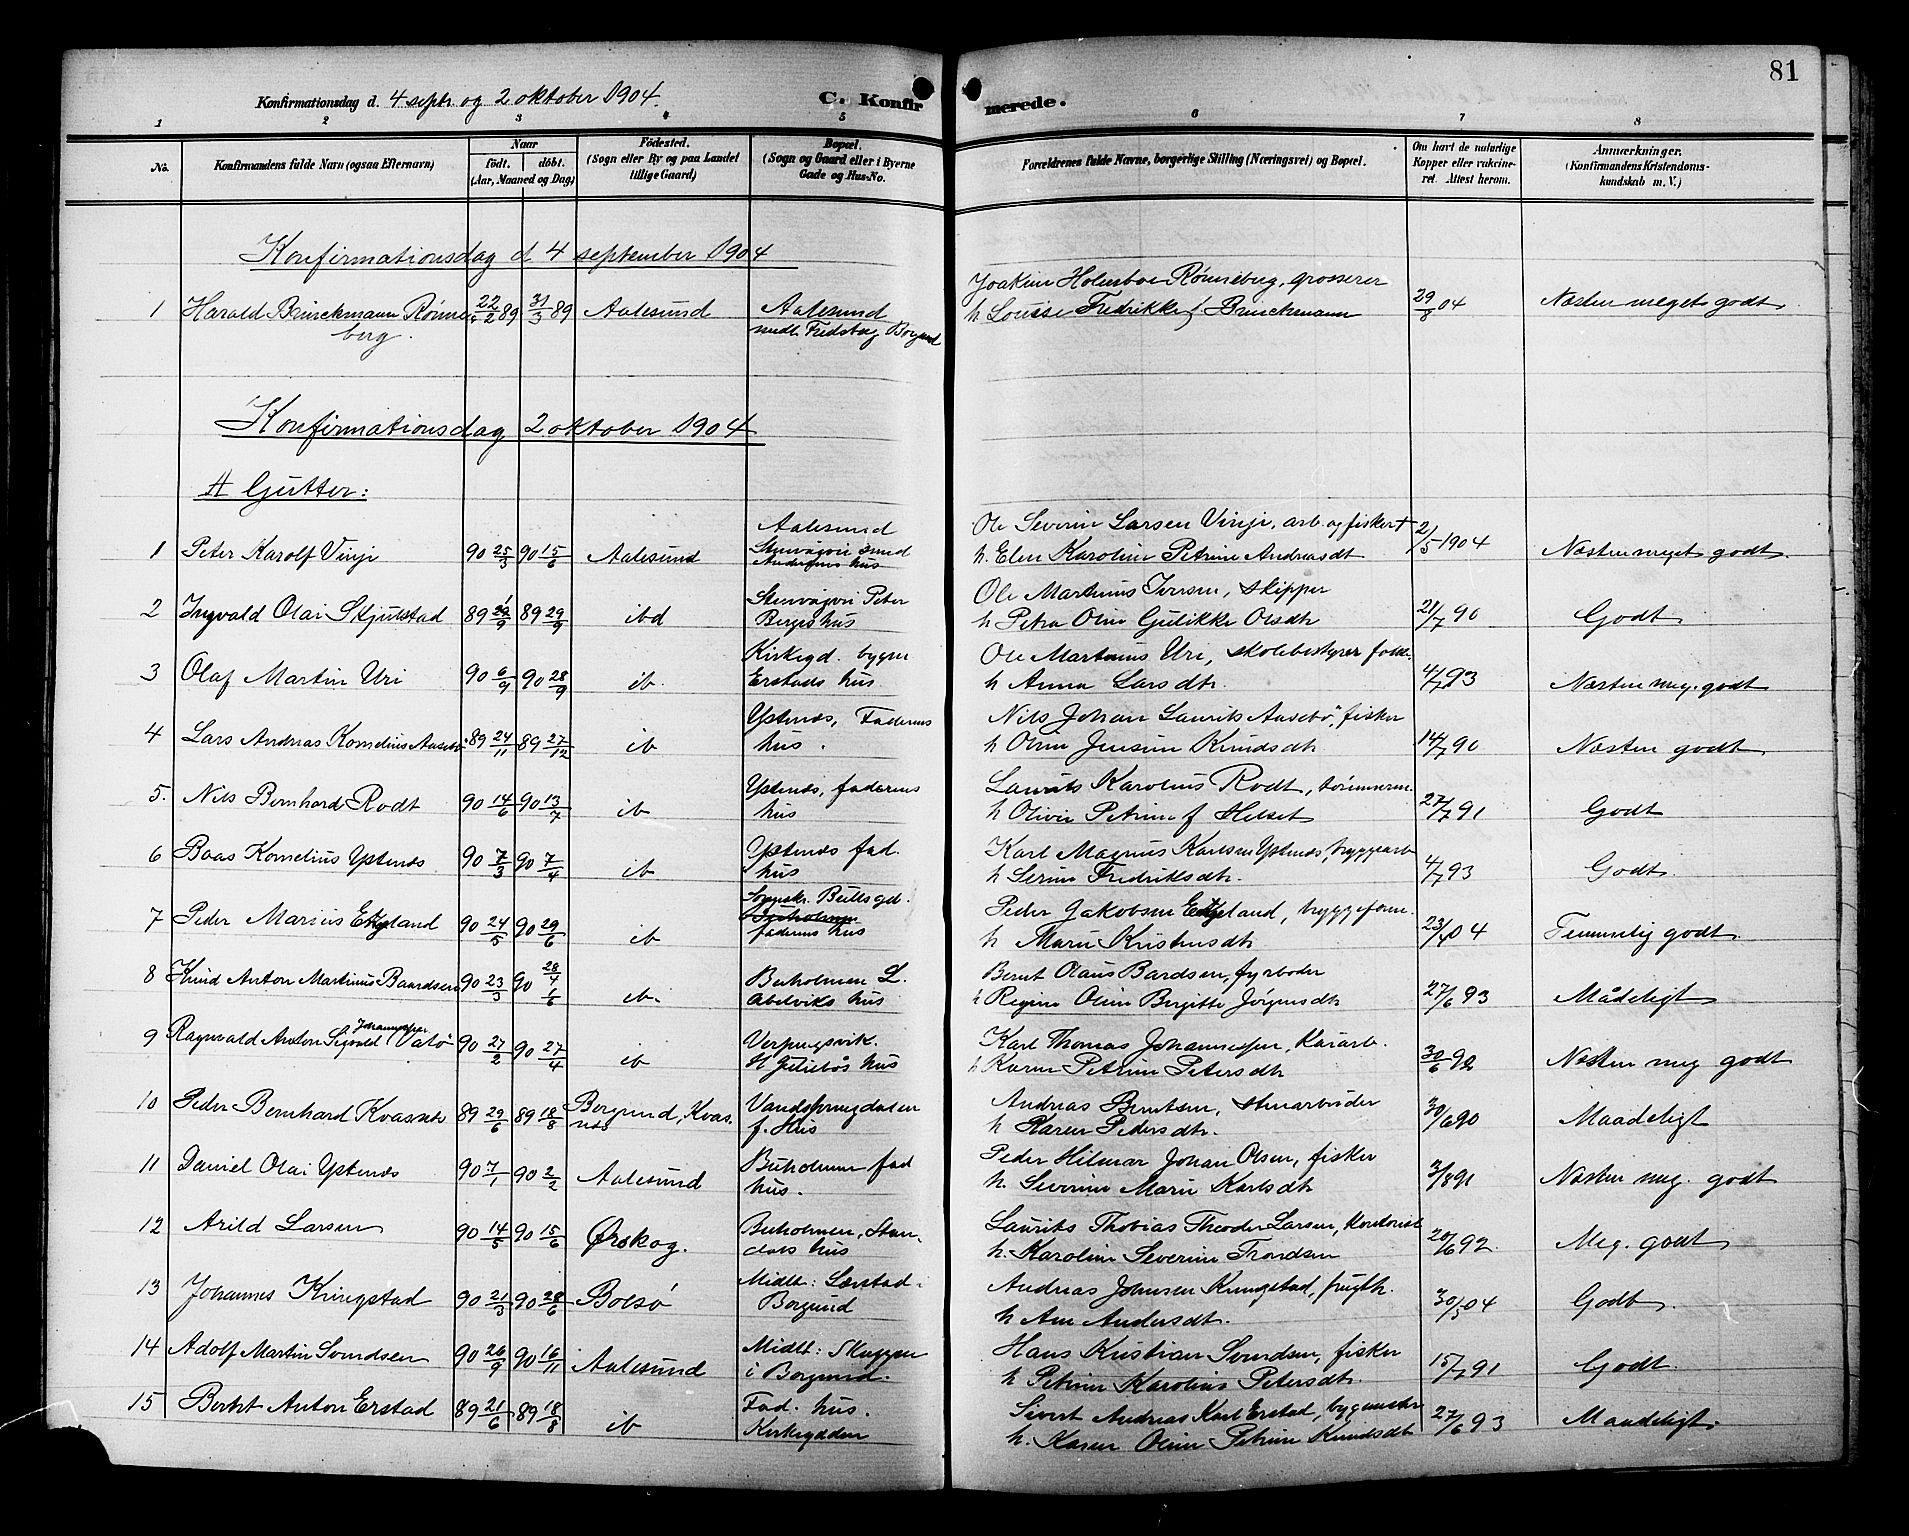 81
Konfirmationsdag d. 4 septr. og 2 oktober 1904.
C. Konfirmerede.
1 2 3 4 5 6 7 8
No.
Konfirmandens fulde Navn (ogsaa Efternavn)
Naar
født. døbt.
(Aar, Maaned og Dag.)
Fødested.
(Sogn eller By og paa Landet
tillige Gaard.)
Bopæl.
(Sogn og Gaard eller i Byerne
Gade og Hus-No.
Forældrenes fulde Navne, borgerlige Stilling (Næringsvei) og Bopæl.
Om havt de naturlige
Kopper eller vakcine-
ret. Attest herom.
Anmærkninger.
(Konfirmandens Kristendoms-
kundskab m. V.)
Konfirmationsdag d 4 september 1904
Joakim Holmboe Rønneberg, grosserer
1 Harald Brinckmann Rønne 22/2 89 31/3 89 Aalesund Aalesund h Louise Fredrikke f Brinckmann 29/8 04 Næsten meget godt
berg. midl. Borgund
Konfirmationsdag 2 oktober 1904
A Gutter:
Aalesund Ole Severin Larsen Vinje, arb. og fisker
1 Peter Karolf Vinje 90 25/3 90 15/6 Aalesund h. Elen Karolin Petrine Andreasdt 2/5 1904 Næsten meget godt.
Andersens hus
Stenvågvei Peter Ole Martinus Iversen, skipper
2 Ingvald Olai Skjulstad 89 89 29/9 ibd Berges hus h Petra Olin Gulikke Olsdtr 21/7 90 Godt
Kirkegd. bygm Ole Martinus Uri, skolebestyrer
3 Olaf Martin Uri 90 6/9 90 28/9 ib. Erstads hus h Anna Larsdtr. 4/7 93 Næsten meg. godt
Ystenæs, Faderens Nils Johan Laurits Aasebø, fisker
4 Lars Andreas Kornelius Aasebø 89 24/11 89 27/12 ib hus. h Olin Jensin Knudsdtr 14/7 90 Næsten godt
Ystenæs, faderens Laurits Karolius Rodt, tømmerm.
5. Nils Bernhard Rodt 90 14/6 90 13/7 ib hus h Olivie Petrine f Helset 27/7 91 Godt
Ystenæs fad. Karl Magnus Karlsen Ystenæs, bryggearb
6 Boas Kornelius Ystenæs 90 7/3 90 7/4 ib hus h Serine Fredriksdtr. 4/7 93 Godt.
Bullsgd. Peder Jakobsen bryggeform.
7 Peder Marius 90 24/5 90 29/6 ib faderens hus h Marie Kristensdtr 23/4 04 Temmelig godt.
8 Knud Anton Martinus Baardsen 90 23/3 90 28/4 6/6 ib. Buholmen L. Bernt Olaus Bardsen, fyrbøder
Abelviks hus h Regine Olin Birgitte Jørgensdtr 27/6 93 Mådeligt
9 Ragnvald Anton Sigvald Johannessen Vatø 90 27/2 90 27/4 ib Verpingsvik. Karl Thomas Johannessen, Kaiarb.
hus h Karen Petrine Petersdtr 30/6 92 Næsten meg godt
10 Peder Bernhard Kvasnes 89 29/6 89 18/8 Borgund, Kvas- Vandspringdalen Andreas Berntsen, stenarbeider
næs f. Hus h Karen Pedersdtr. 30/6 90 Maadeligt
11 Daniel Olai Ystenæs 90 7/1 90 2/2 Aalesund Buholmen fad Peder Hilmar Johan Olsen, fisker
hus. h. Severine Marie Karlsdtr 3/8 91 Næsten meg. godt
12 Arild Larsen 90 14/5 90 15/6 Ørskog. Buholmen, Stan- Laurits Thobias Theodor Larsen, Kontorist
dals hus h. Karoline Severine Trondsen 20/6 92. Meg. godt
13 Johannes Kringstad 90 21/3 90 28/6 Bolsø Midlt: Larstad i Andreas Johnsen Kringstad,
Borgund h Ane Andersdtr. 30/5 04 Godt.
14 Adolf Martin Svendsen 90 26/9 90 16/11 Aalesund Midlt: Skuggen Hans Kristian Svendsen, fisker
i Borgund. h Petrine Karoline Petersdtr. 15/7 91 Godt
15 Berent Anton Erstad 89 21/6 89 18/8 ib Fad. hus. Sivert Andreas Karl Erstad, bygmester
Kirkegaden h. Karen Olin Petrine Knudsdtr 27/6 93 Maadeligt.